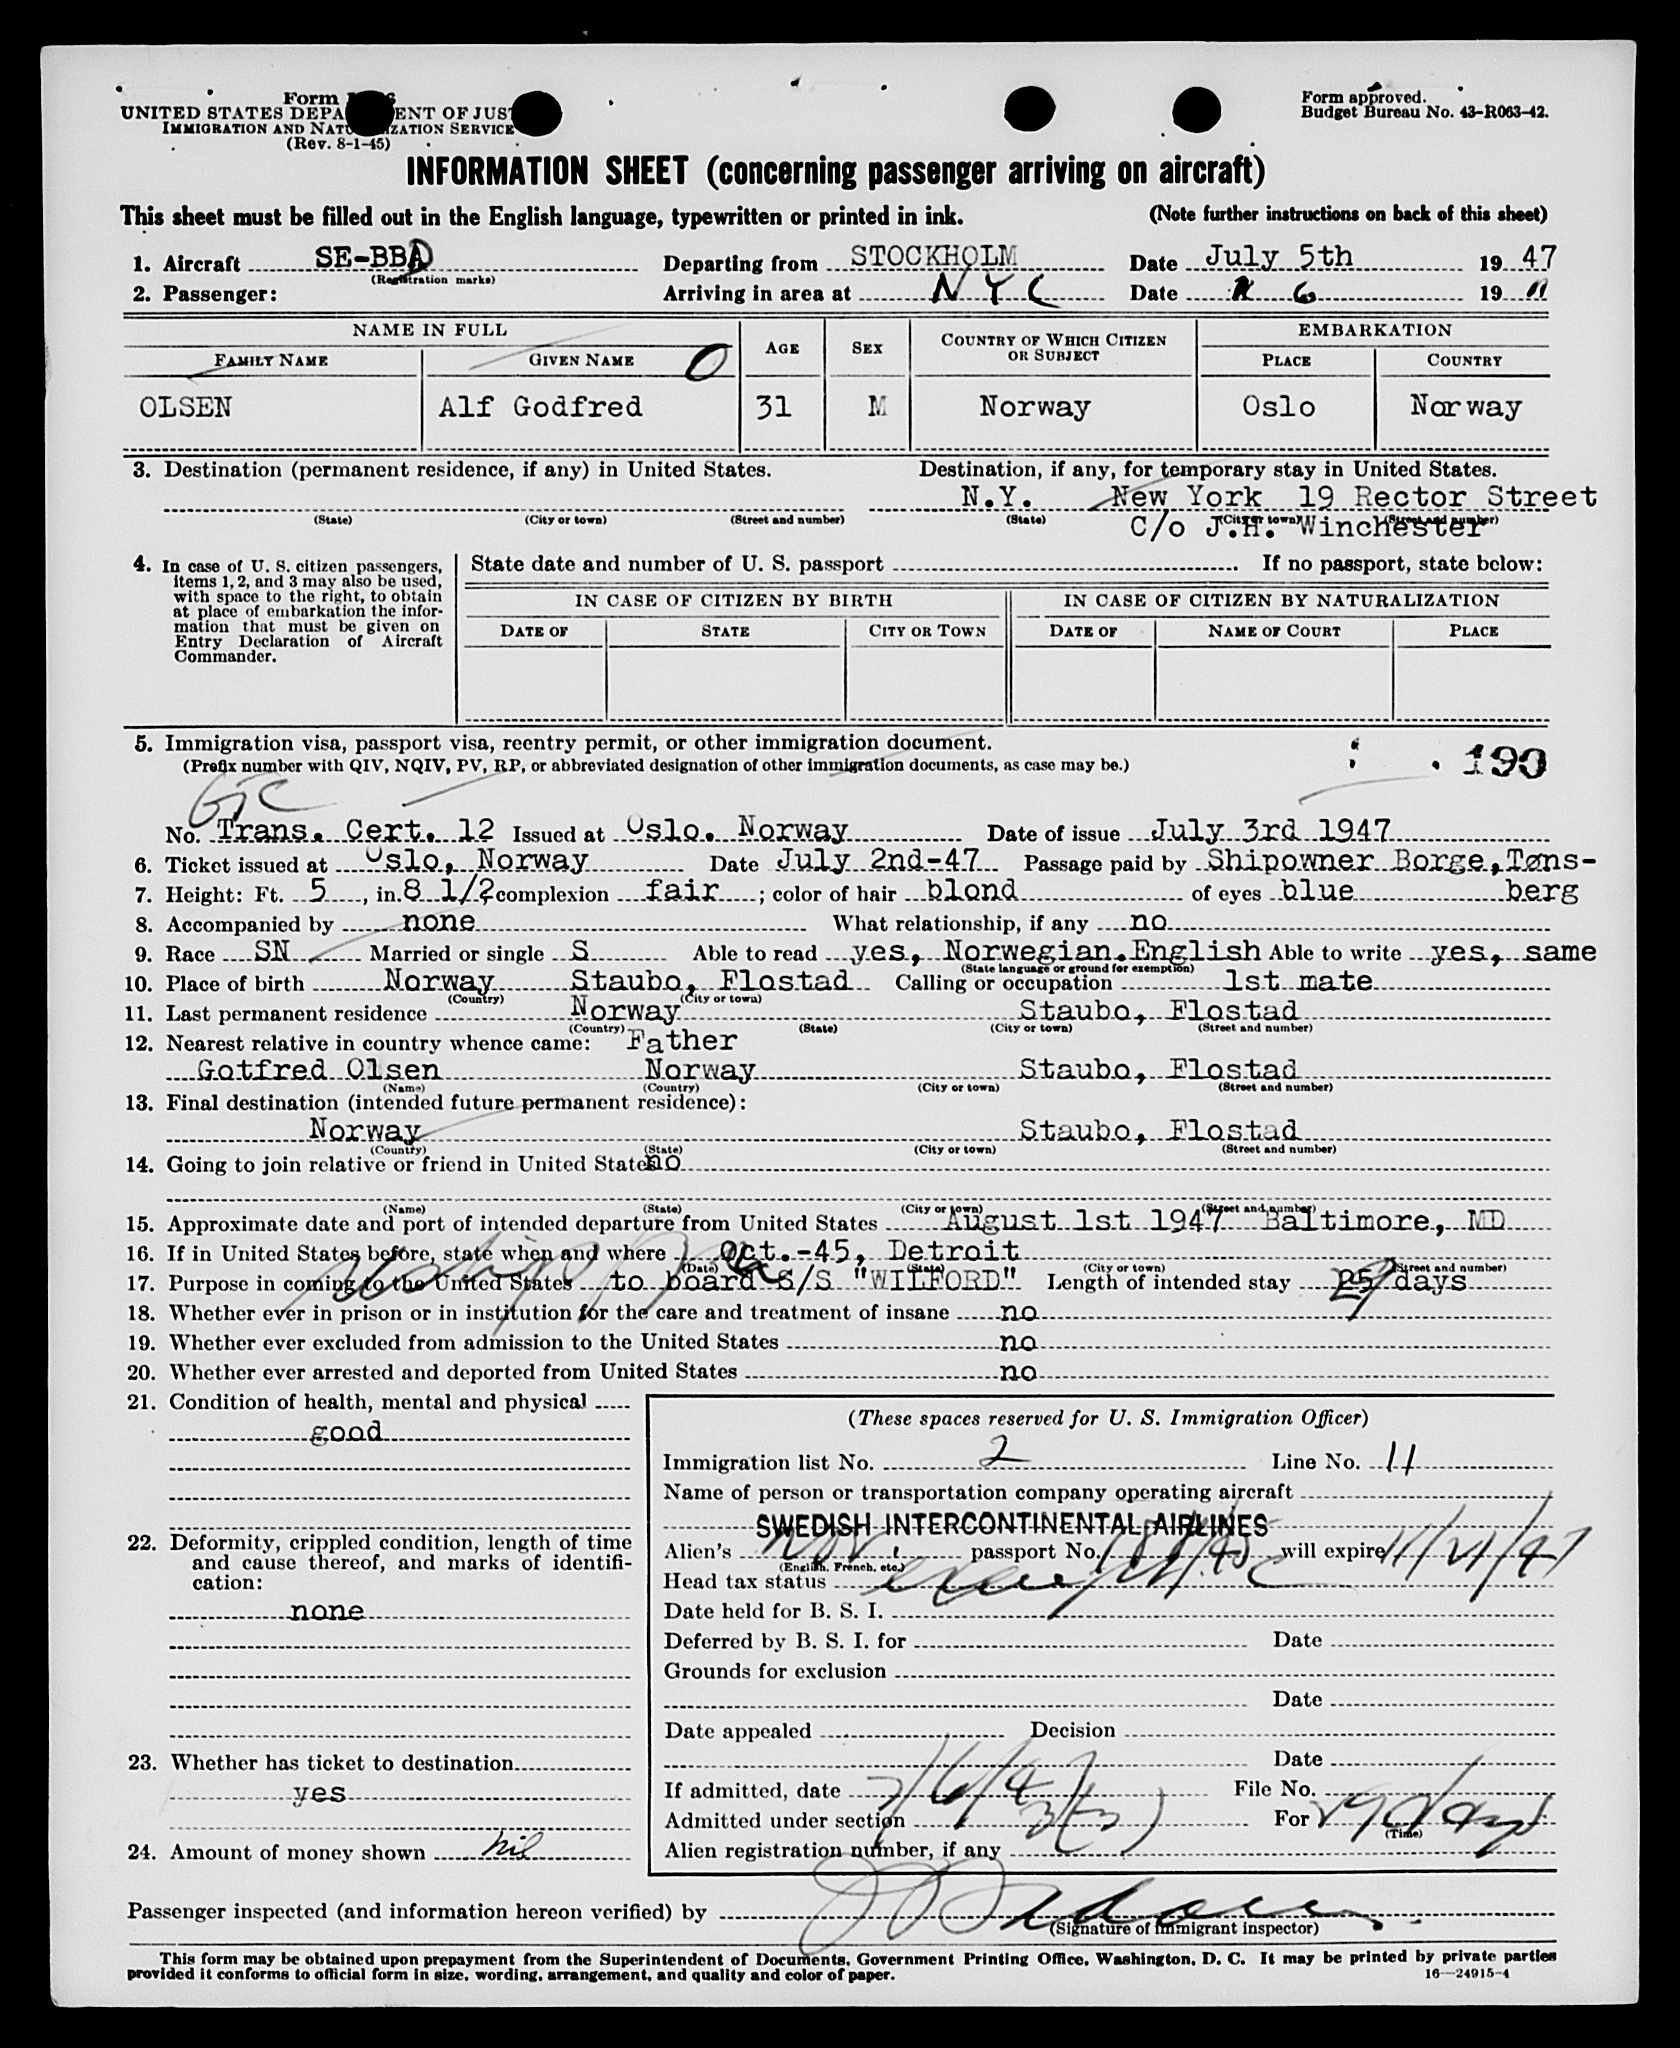 Form
UNITED STATES DEPA ENT OF JUS
IMMIGRATION AND NATU IZATION SERVICE
(Rev. 8-1-45)
Form approved.
Budget Bureau No. 43-R063-42.
INFORMATION SHEET (concerning passenger arriving on aircraft)
This sheet must be filled out in the English language, typewritten or printed in ink. (Note further instructions on back of this sheet)
1. Aircraft SE-BBD Departing from STOCKHOLM Date July 5th 1947
(Registration marks)
2. Passenger: Arriving in area at NYC Date 6 19
NAME IN FULL AGE SEX COUNTRY OF WHICH CITIZEN OR SUBJECT EMBARKATION
FAMILY NAME GIVEN NAME O PLACE COUNTRY
OLSEN Alf Godfred 31 M Norway Oslo Norway
3. Destination (permanent residence, if any) in United States. Destination, if any, for temporary stay in United States.
N.Y. New York 19 Rector Street
(State) (City or town) (Street and number) (State) (City or town) (Street and number)
C/o J.H. Winchester
4. In case of U. S. citizen passengers, items 1, 2, and 3 may also be used, with space to the right, to obtain at place of embarkation the information that must be given on Entry Declaration of Aircraft Commander.
State date and number of U. S. passport If no passport, state below:
IN CASE OF CITIZEN BY BIRTH IN CASE OF CITIZEN BY NATURALIZATION
DATE OF STATE CITY OR TOWN DATE OF NAME OF COURT PLACE
5. Immigration visa, passport visa, reentry permit, or other immigration document.
(Prefix number with QIV, NQIV, PV, RP, or abbreviated designation of other immigration documents, as case may be.)
190
No. Trans. Cert. 12 Issued at Oslo. Norway Date of issue July 3rd 1947
6. Ticket issued at Oslo, Norway Date July 2nd-47 Passage paid by Shipowner Borge, Tøns-
7. Height: Ft. 5, in. 8 1/2; complexion fair; color of hair blond of eyes blue berg
8. Accompanied by none What relationship, if any no
9. Race SN Married or single S Able to read yes, Norwegian.English Able to write yes, same
(State language or ground for exemption)
10. Place of birth Norway Staubo, Flostad Calling or occupation 1st mate
(Country) (City or town)
11. Last permanent residence Norway Staubo, Flostad
(Country) (State) (City or town) (Street and number)
12. Nearest relative in country whence came: Father
Gotfred Olsen Norway Staubo, Flostad
(Name) (Country) (City or town) (Street and number)
13. Final destination (intended future permanent residence):
Norway Staubo, Flostad
(Country) (State) (City or town) (Street and number)
14. Going to join relative or friend in United States no
(Name) (State) (City or town) (Street and number)
15. Approximate date and port of intended departure from United States August 1st 1947 Baltimore, MD
16. If in United States before, state when and where Oct.-45, Detroit
(Date) (State) (City or town) (Street and number)
17. Purpose in coming to the United States to board S/S "WILFORD" Length of intended stay 25 days
29
18. Whether ever in prison or in institution for the care and treatment of insane no
19. Whether ever excluded from admission to the United States no
20. Whether ever arrested and deported from United States no
21. Condition of health, mental and physical
good
22. Deformity, crippled condition, length of time and cause thereof, and marks of identification:
none
23. Whether has ticket to destination
yes
24. Amount of money shown nil
(These spaces reserved for U. S. Immigration Officer)
Immigration list No. 2 Line No. 11
Name of person or transportation company operating aircraft
SWEDISH INTERCONTINENTAL AIRLINES
Alien's nor. passport No. will expire 11/21/47
(English, French, etc.)
Head tax status
Date held for B. S. I.
Deferred by B. S. I. for Date
Grounds for exclusion
Date
Date appealed Decision
Date
If admitted, date 7/6/47 File No.
Admitted under section 3(3) For 29 days
(Time)
Alien registration number, if any
Passenger inspected (and information hereon verified) by
(Signature of immigrant inspector)
This form may be obtained upon prepayment from the Superintendent of Documents, Government Printing Office, Washington, D. C. It may be printed by private parties
provided it conforms to official form in size, wording, arrangement, and quality and color of paper. 16—24915-4